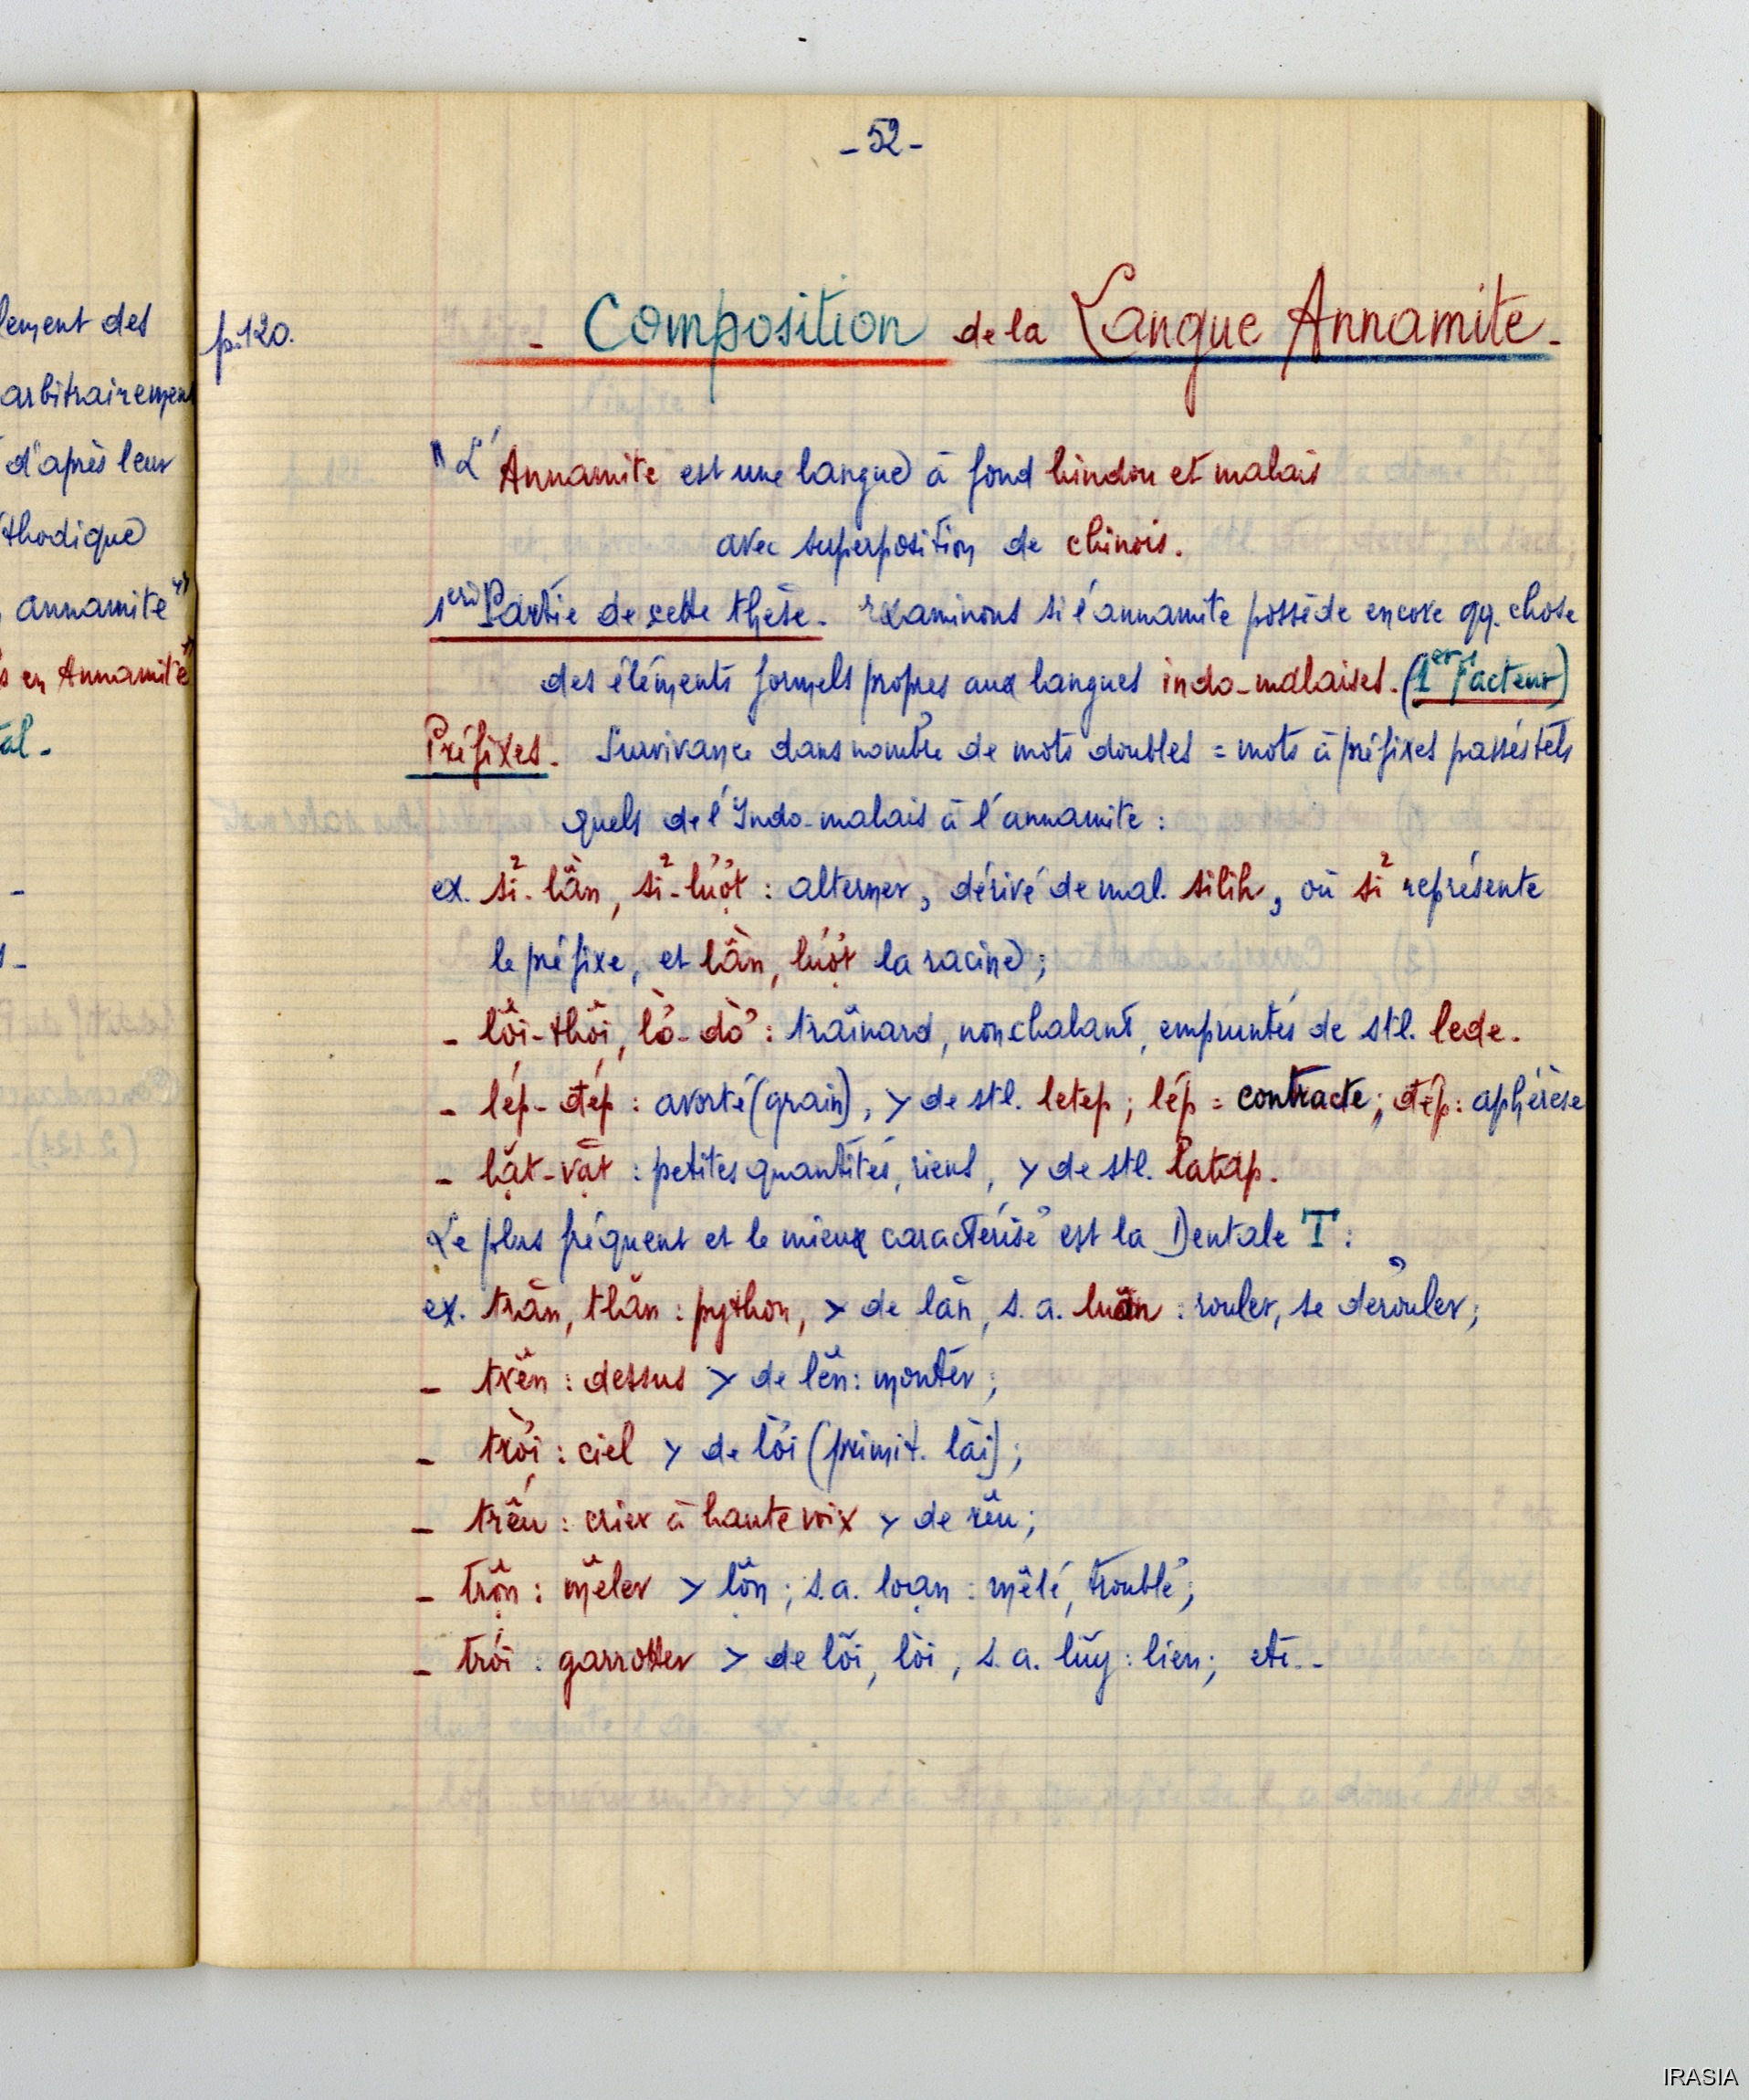 - 52 -
lement des
arbitrairement
d'après leur
thodique
annamite"
s en Annamite"
tal -
p. 120.
- Composition de la Langue Annamite -
"L'Annamite est une langue à fond hindou et malais
avec superposition de chinois.
1ère Partie de cette thèse - Examinons si l'annamite possède encore qq. chose
des éléments formels propres aux langues indo-malaises. (1er Facteur)
Préfixes - Survivance dans nombre de mots doubles = mots à préfixes passés tels
quels de l'Indo-malais à l'annamite :
ex. sỉ-lần, sỉ-lượt : alterner, dérivé de mal. silih, où sỉ représente
le préfixe, et lần, lượt la racine ;
- lôi-thôi, lờ-dờ : traînard, nonchalant, empruntés de stl. lede -
- lép-đép : avorté (grain), > de stl. letep ; lép = contracte ; đép : aphérèse
- lặt-vặt : petites quantités, riens, > de stl. latap.
Le plus fréquent et le mieux caractérisé est la Dentale T :
ex. trăn, tlăn : python, > de lăn, s. a. luân : rouler, se dérouler ;
- trên : dessus > de lên : monter ;
- trời : ciel > de lời (primit. lài) ;
- trếu : crier à haute voix > de rêu ;
- trộn : mêler > lộn ; s. a. loạn : mêlé, troublé ;
- trói : garrotter > de lõi, lòi, s. a. lũy : lien ; etc - -
IRASIA